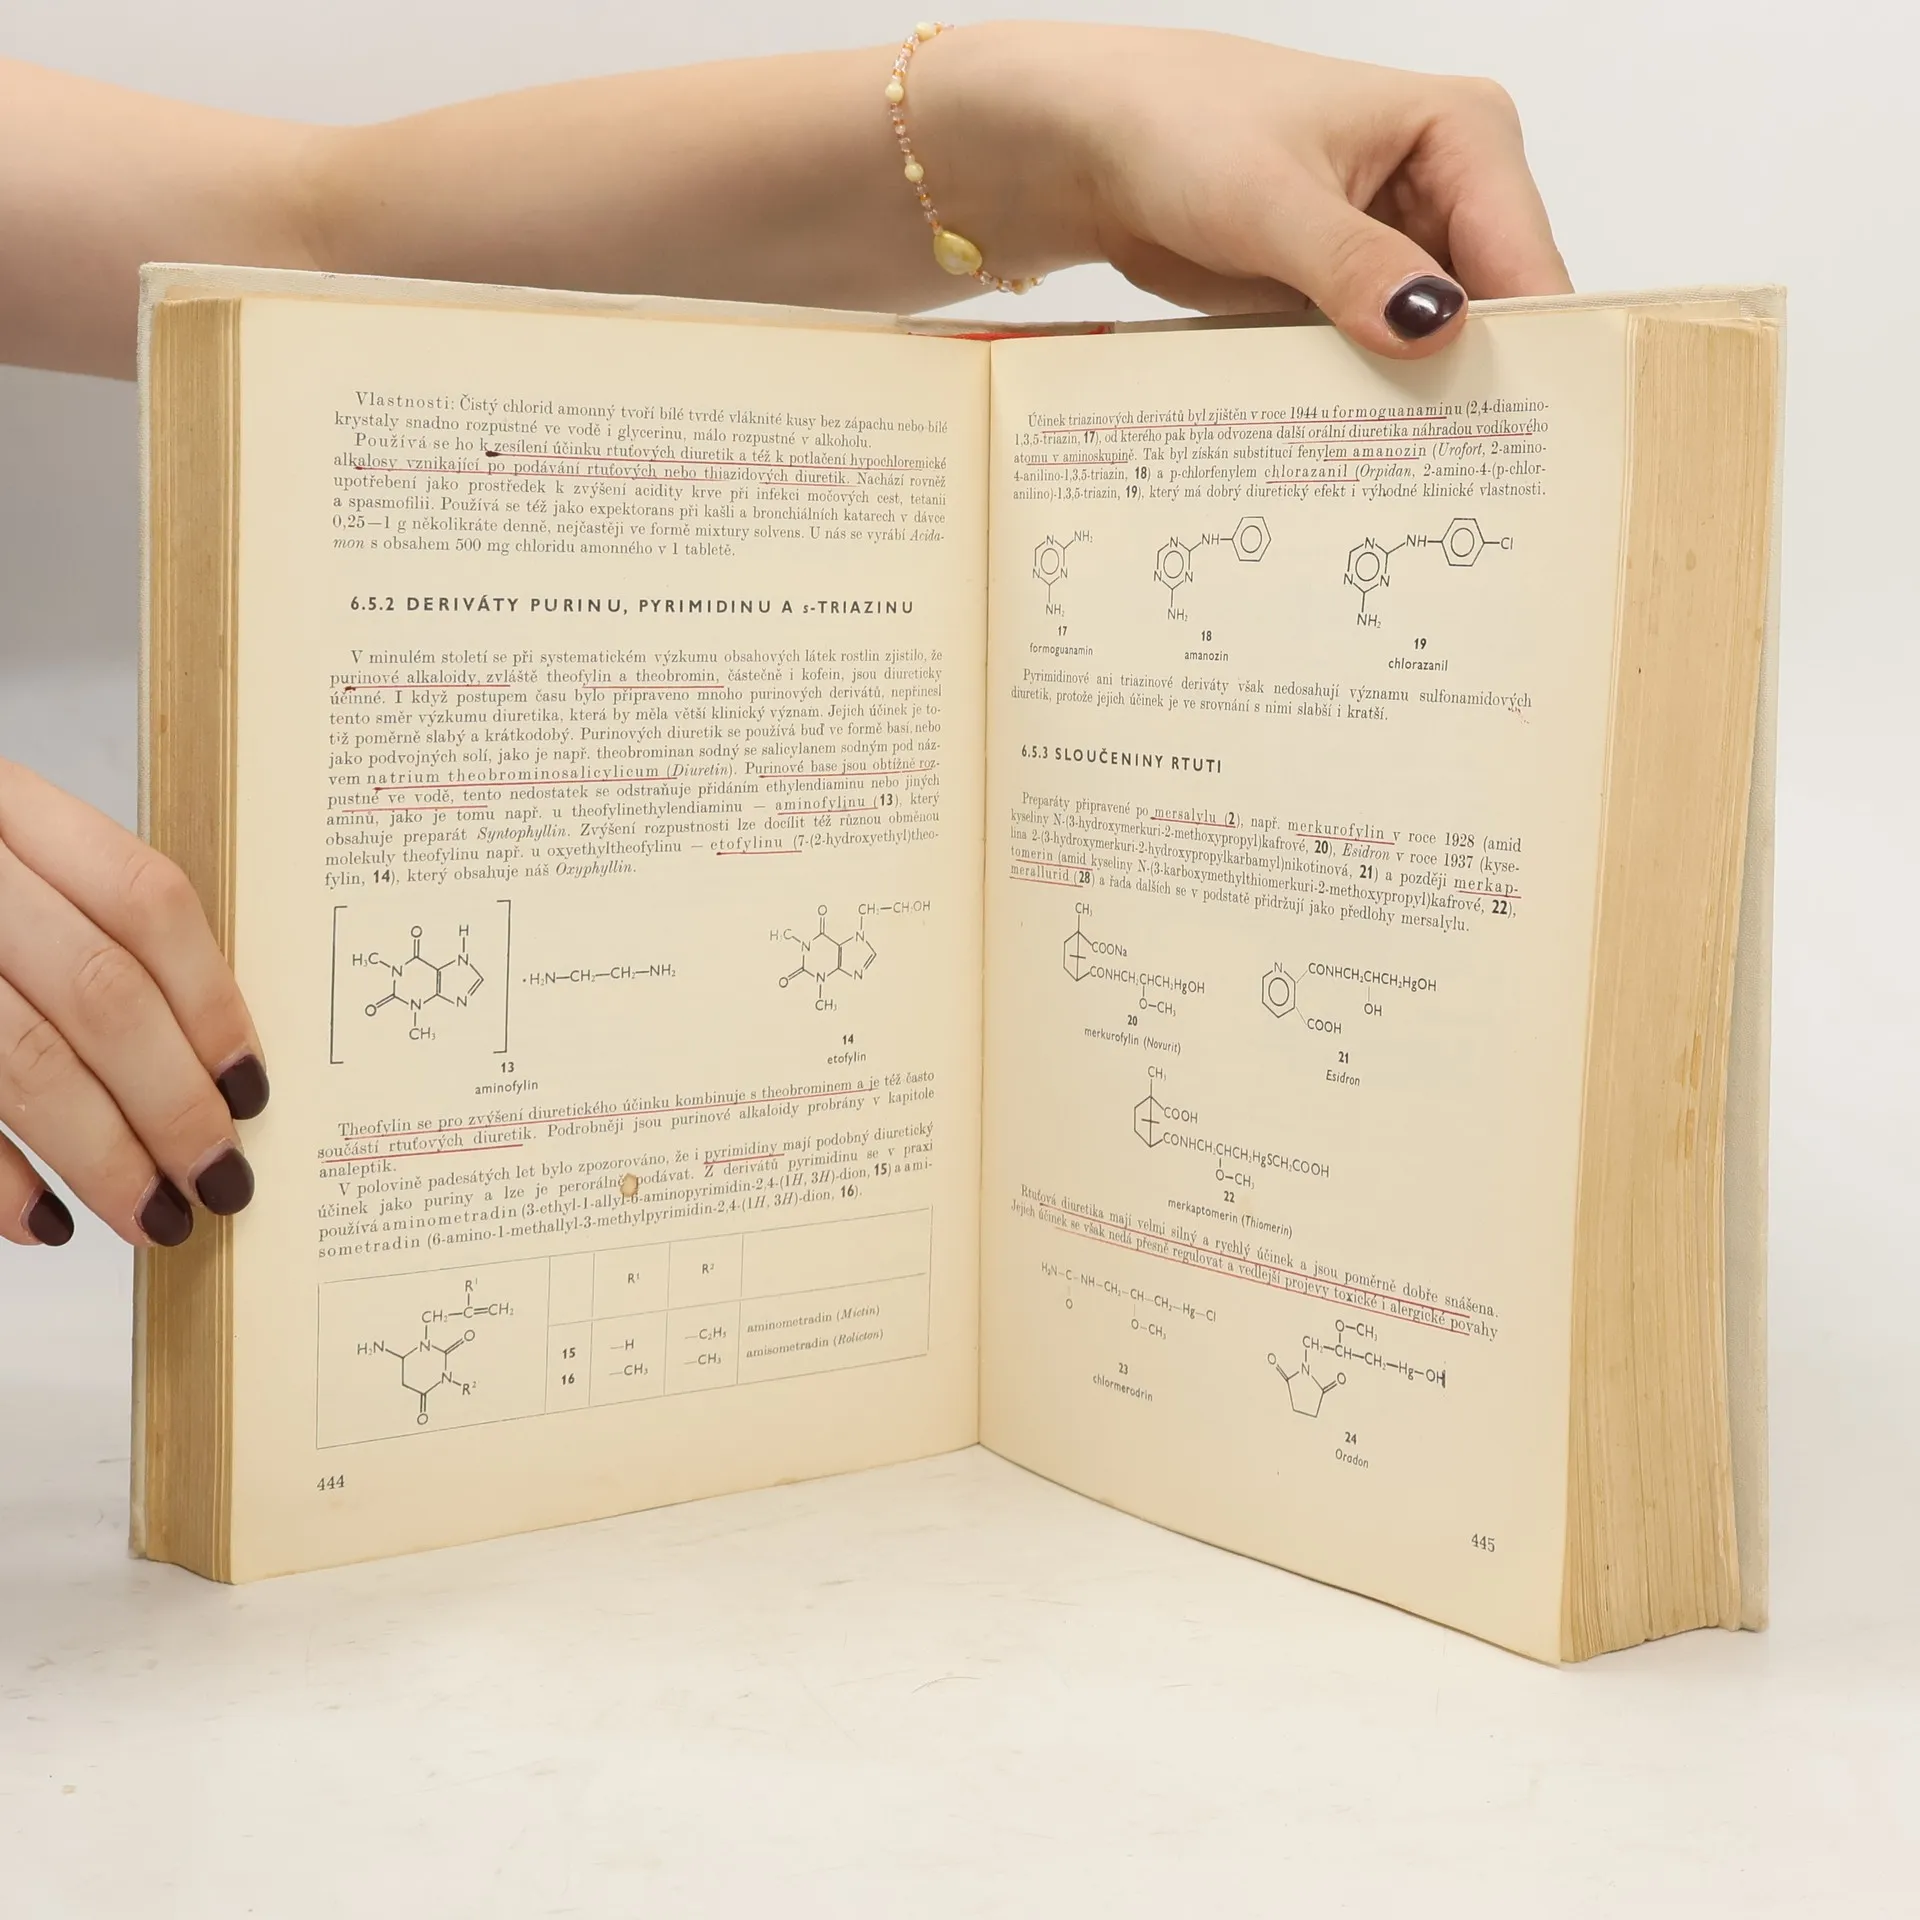 Vlastnosti: Čistý chlorid amonný tvoří bílé tvrdé vláknité kusy bez zápachu nebo bílé
krystaly snadno rozpustné ve vodě i glycerinu, málo rozpustné v alkoholu.
Používá se ho k zesílení účinku rtuťových diuretik a též k potlačení hypochloremické
alkalosy vznikající po podávání rtuťových nebo thiazidových diuretik. Nachází rovněž
upotřebení jako prostředek k zvýšení acidity krve při infekci močových cest, tetanii
a spasmofilii. Používá se též jako expektorans při kašli a bronchiálních katarech v dávce
0,25—1 g několikráte denně, nejčastěji ve formě mixtury solvens. U nás se vyrábí Acida-
mon s obsahem 500 mg chloridu amonného v 1 tabletě.
6.5.2 DERIVÁTY PURINU, PYRIMIDINU A s-TRIAZINU
V minulém století se při systematickém výzkumu obsahových látek rostlin zjistilo, že
purinové alkaloidy, zvláště theofylin a theobromin, částečně i kofein, jsou diureticky
účinné. I když postupem času bylo připraveno mnoho purinových derivátů, nepřinesl
tento směr výzkumu diuretika, která by měla větší klinický význam. Jejich účinek je to-
tiž poměrně slabý a krátkodobý. Purinových diuretik se používá buď ve formě basí, nebo
jako podvojných solí, jako je např. theobrominan sodný se salicylanem sodným pod náz-
vem natrium theobrominosalicylicum (Diuretin). Purinové base jsou obtížně roz-
pustné ve vodě, tento nedostatek se odstraňuje přidáním ethylendiaminu nebo jiných
aminů, jako je tomu např. u theofylinethylendiaminu — aminofylinu (13), který
obsahuje preparát Syntophyllin. Zvýšení rozpustnosti lze docílit též různou obměnou
molekuly theofylinu např. u oxyethyltheofylinu — etofylinu (7-(2-hydroxyethyl)theo-
fylin, 14), který obsahuje náš Oxyphyllin.
O H
H₃C N N
O N N
CH₃
· H₂N—CH₂—CH₂—NH₂
13
aminofylin
O CH₂—CH₂OH
H₃C N N
O N N
CH₃
14
etofylin
Theofylin se pro zvýšení diuretického účinku kombinuje s theobrominem a je též často
součástí rtuťových diuretik. Podrobněji jsou purinové alkaloidy probrány v kapitole
analeptik.
V polovině padesátých let bylo zpozorováno, že i pyrimidiny mají podobný diuretický
účinek jako puriny a lze je perorálně podávat. Z derivátů pyrimidinu se v praxi
používá aminometradin (3-ethyl-1-allyl-6-aminopyrimidin-2,4-(1H, 3H)-dion, 15) a ami-
sometradin (6-amino-1-methallyl-3-methylpyrimidin-2,4-(1H, 3H)-dion, 16).
R¹
CH₂—C=CH₂
H₂N N O
N—R²
O
R¹ R²
15 —H —C₂H₅ aminometradin (Mictin)
16 —CH₃ —CH₃ amisometradin (Rolicton)
444
Účinek triazinových derivátů byl zjištěn v roce 1944 u formoguanaminu (2,4-diamino-
1,3,5-triazin, 17), od kterého pak byla odvozena další orální diuretika náhradou vodíkového
atomu v aminoskupině. Tak byl získán substitucí fenylem amanozin (Urofort, 2-amino-
4-anilino-1,3,5-triazin, 18) a p-chlorfenylem chlorazanil (Orpidan, 2-amino-4-(p-chlor-
anilino)-1,3,5-triazin, 19), který má dobrý diuretický efekt i výhodné klinické vlastnosti.
N NH₂
N N
NH₂
17
formoguanamin
N NH
N N
NH₂
18
amanozin
N NH Cl
N N
NH₂
19
chlorazanil
Pyrimidinové ani triazinové deriváty však nedosahují významu sulfonamidových
diuretik, protože jejich účinek je ve srovnání s nimi slabší i kratší.
6.5.3 SLOUČENINY RTUTI
Preparáty připravené po mersalylu (2), např. merkurofylin v roce 1928 (amid
kyseliny N-(3-hydroxymerkuri-2-methoxypropyl)kafrové, 20), Esidron v roce 1937 (kyse-
lina 2-(3-hydroxymerkuri-2-hydroxypropylkarbamyl)nikotinová, 21) a později merkap-
tomerin (amid kyseliny N-(3-karboxymethylthiomerkuri-2-methoxypropyl)kafrové, 22),
merallurid (28) a řada dalších se v podstatě přidržují jako předlohy mersalylu.
CH₃
COONa
CONHCH₂CHCH₂HgOH
O—CH₃
20
merkurofylin (Novurit)
N CONHCH₂CHCH₂HgOH
OH
COOH
21
Esidron
CH₃
COOH
CONHCH₂CHCH₂HgSCH₂COOH
O—CH₃
22
merkaptomerin (Thiomerin)
Rtuťová diuretika mají velmi silný a rychlý účinek a jsou poměrně dobře snášena.
Jejich účinek se však nedá přesně regulovat a vedlejší projevy toxické i alergické povahy
H₂N—C—NH—CH₂—CH—CH₂—Hg—Cl
O O—CH₃
23
chlormerodrin
O—CH₃
CH₂—CH—CH₂—Hg—OH
O N O
24
Oradon
445